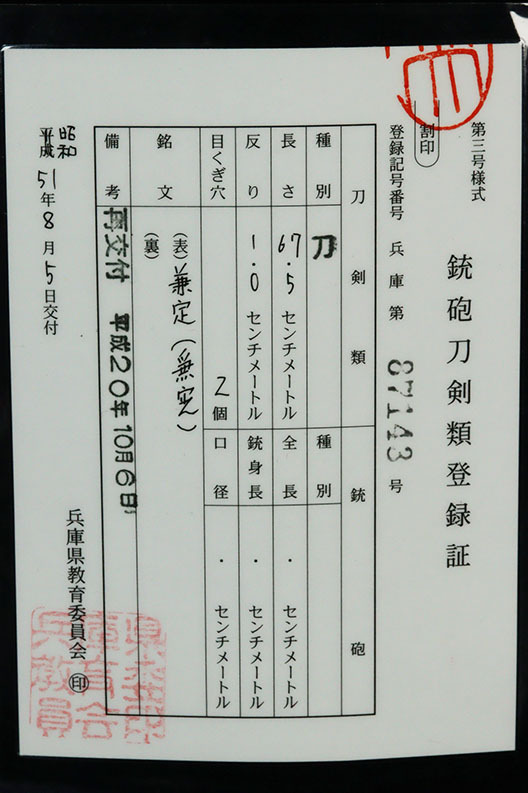 第三号様式
割印
銃砲刀剣類登録証
登録記号番号 兵庫第 87143 号
刀剣類 銃砲
種別 刀 種別
長さ 67.5 センチメートル 全長 ・ センチメートル
反り 1.0 センチメートル 銃身長 ・ センチメートル
目くぎ穴 2個 口径 ・ センチメートル
銘文 (表) 兼定(兼定)
(裏)
備考 再交付 平成20年10月6日
昭和
平成 51年8月5日交付
兵庫県教育委員会 印